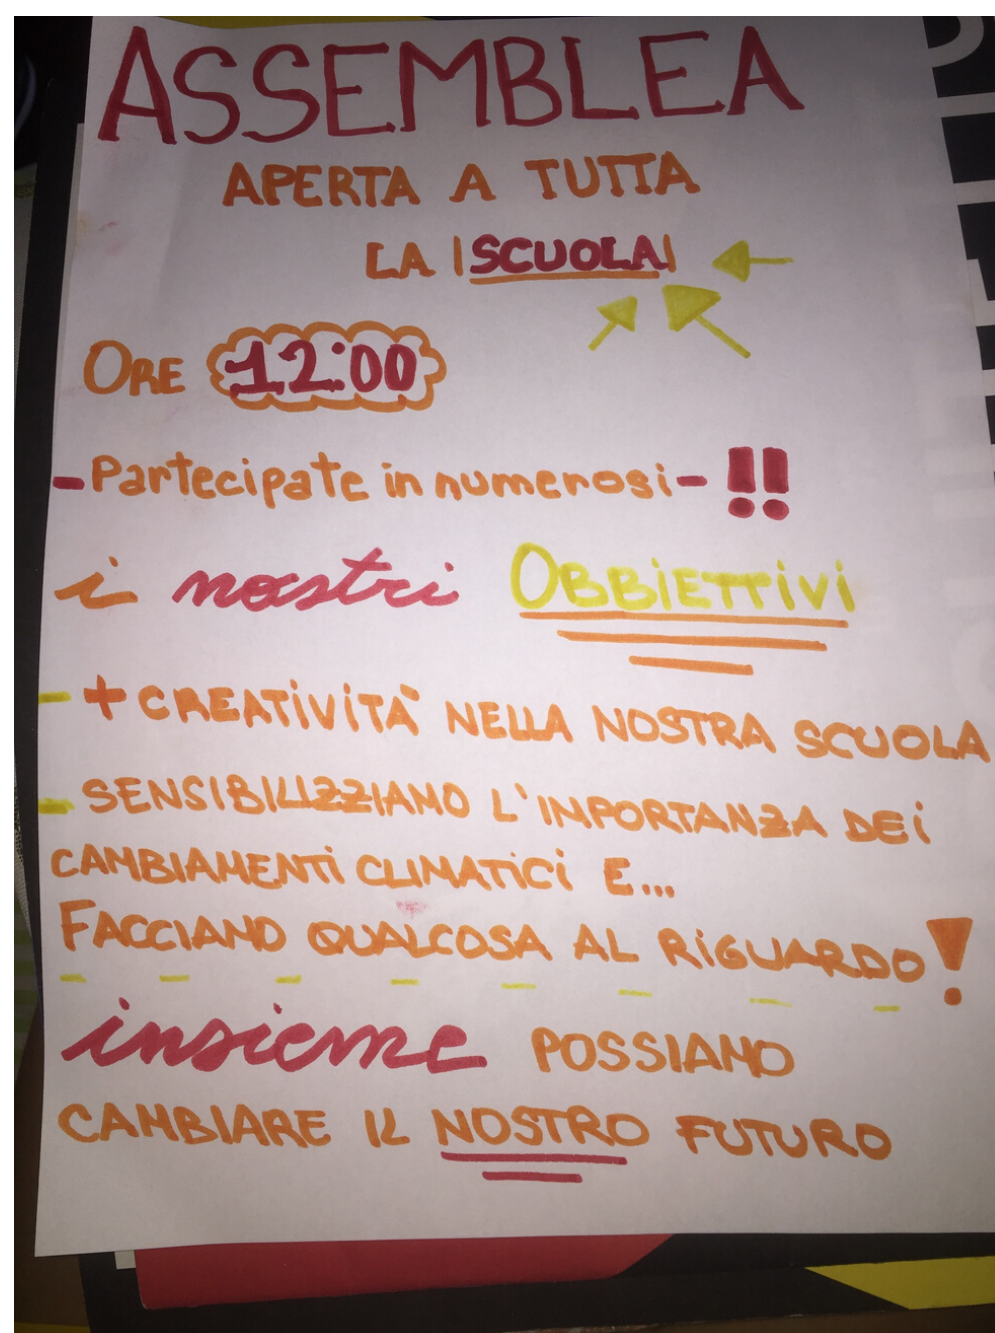 ASSEMBLEA
APERTA A TUTTA
LA |SCUOLA|
ORE 12:00
- Partecipate in numerosi - !!
i nostri OBBIETTIVI
- + CREATIVITÀ NELLA NOSTRA SCUOLA
- SENSIBILIZZIAMO L'IMPORTANZA DEI
CAMBIAMENTI CLIMATICI E...
FACCIAMO QUALCOSA AL RIGUARDO!
insieme POSSIAMO
CAMBIARE IL NOSTRO FUTURO